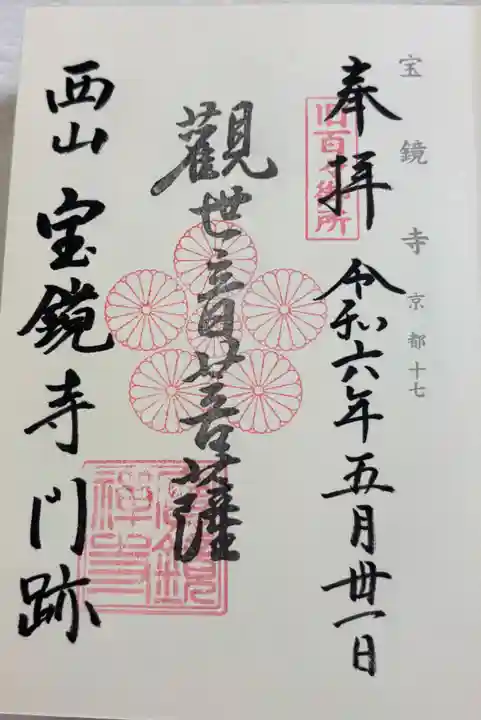 宝鏡寺 京都十七
奉拝
旧百々御所
令和六年五月丗一日
觀世音菩薩
西山 宝鏡寺門跡